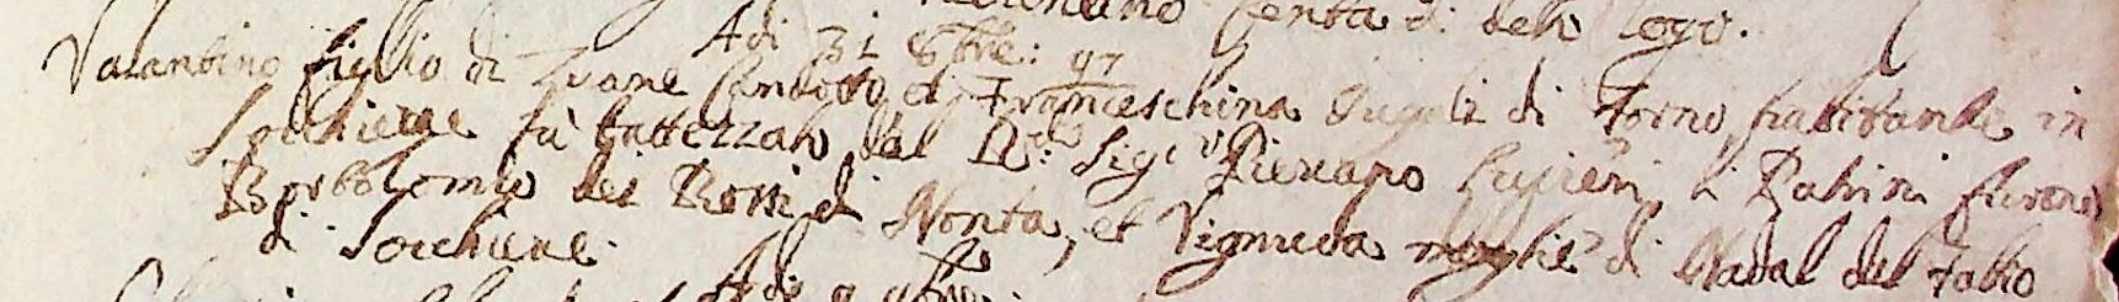 Centa di detti logo.
Adi 31 8bre: 97
Valantino figlio di Zuane Candotto et Franceschina di Forno habitante in
Sochieve fù battezzato dal Rd: Sigr Pievano Lupieri, li Patrini furono
Bortolomio dei Rossi di Nonta, et Vigniuda moglie di Nadal del Fabro
di Sochieve.
Adi 9 9bre: